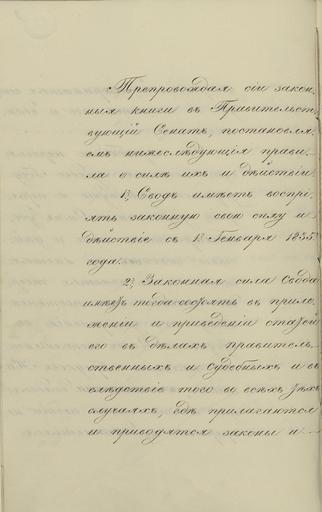 Препровождая сіи закон-
ныя книги въ Правительст-
вующій Сенатъ, постановля-
емъ нижеслѣдующія прави-
ла о силѣ ихъ и дѣйствіи
1. Сводъ имѣетъ воспрі-
ять законную свою силу и
дѣйствіе съ 1го Генваря 1835
года.
2. Законная сила Свода
имѣетъ тогда состоять въ прило-
женіи и приведеніи статей
его въ дѣлахъ правитель-
ственныхъ и судебныхъ и въ
слѣдствіе того во всѣхъ тѣхъ
случаяхъ, гдѣ прилагаются
и приводятся законы и